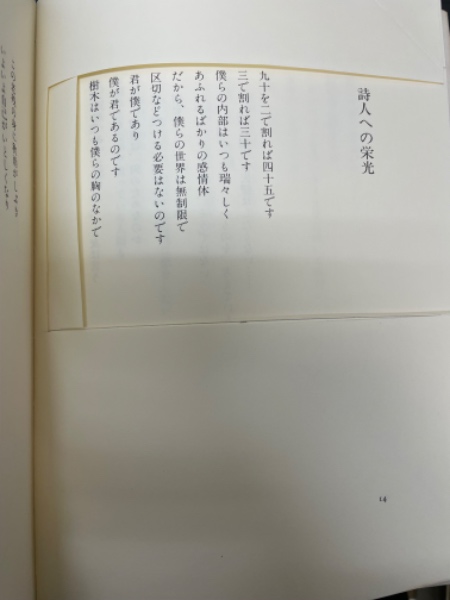 詩人への栄光
九十を二で割れば四十五です
三で割れば三十です
僕らの内部はいつも瑞々しく
あふれるばかりの感情体
だから、僕らの世界は無制限で
区切などつける必要はないのです
君が僕であり
僕が君であるのです
樹木はいつも僕らの胸のなかで
14